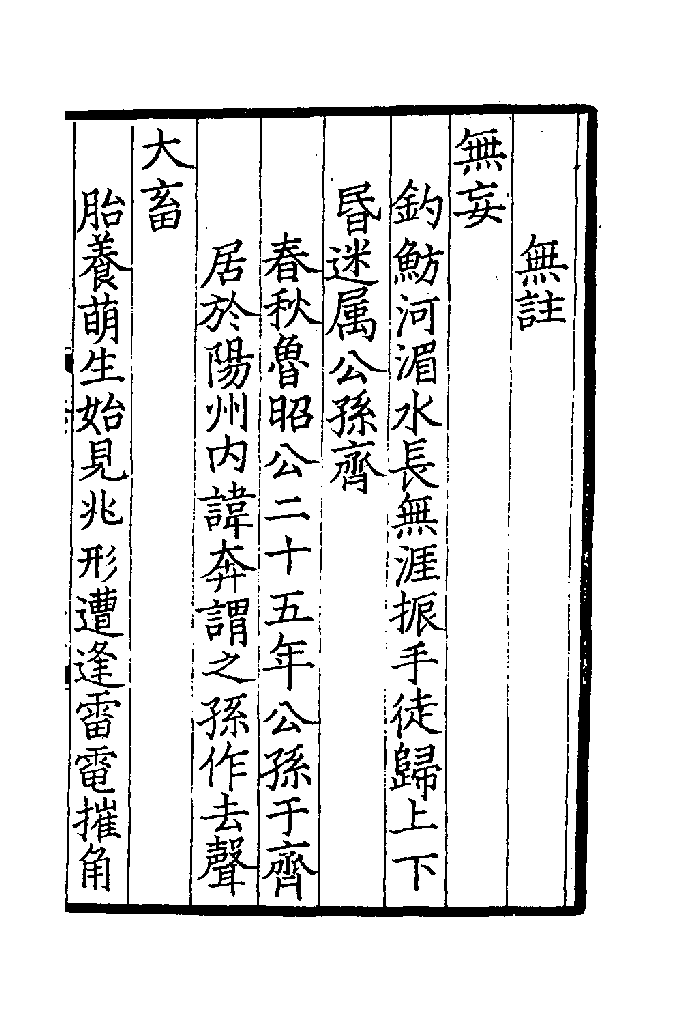 無註
無妄
釣魴河湄水長無涯振手徒歸上下
昏迷属公孫齊
春秋魯昭公二十五年公孫于齊
居於陽州内諱奔謂之孫作去聲
大畜
胎養萌生始見兆形遭逢雷電摧角